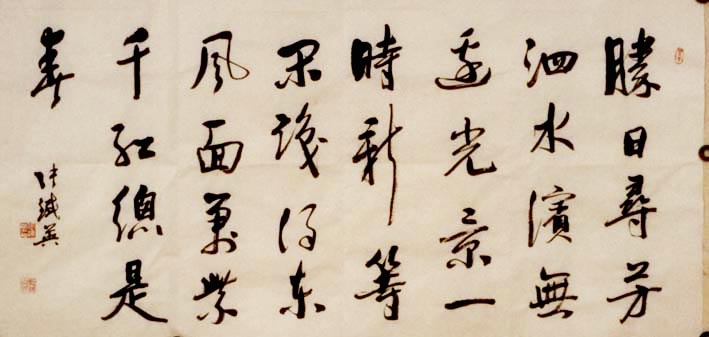 勝日尋芳
泗水濱無
邊光景一
時新等
閑識得東
風面萬紫
千紅總是
春